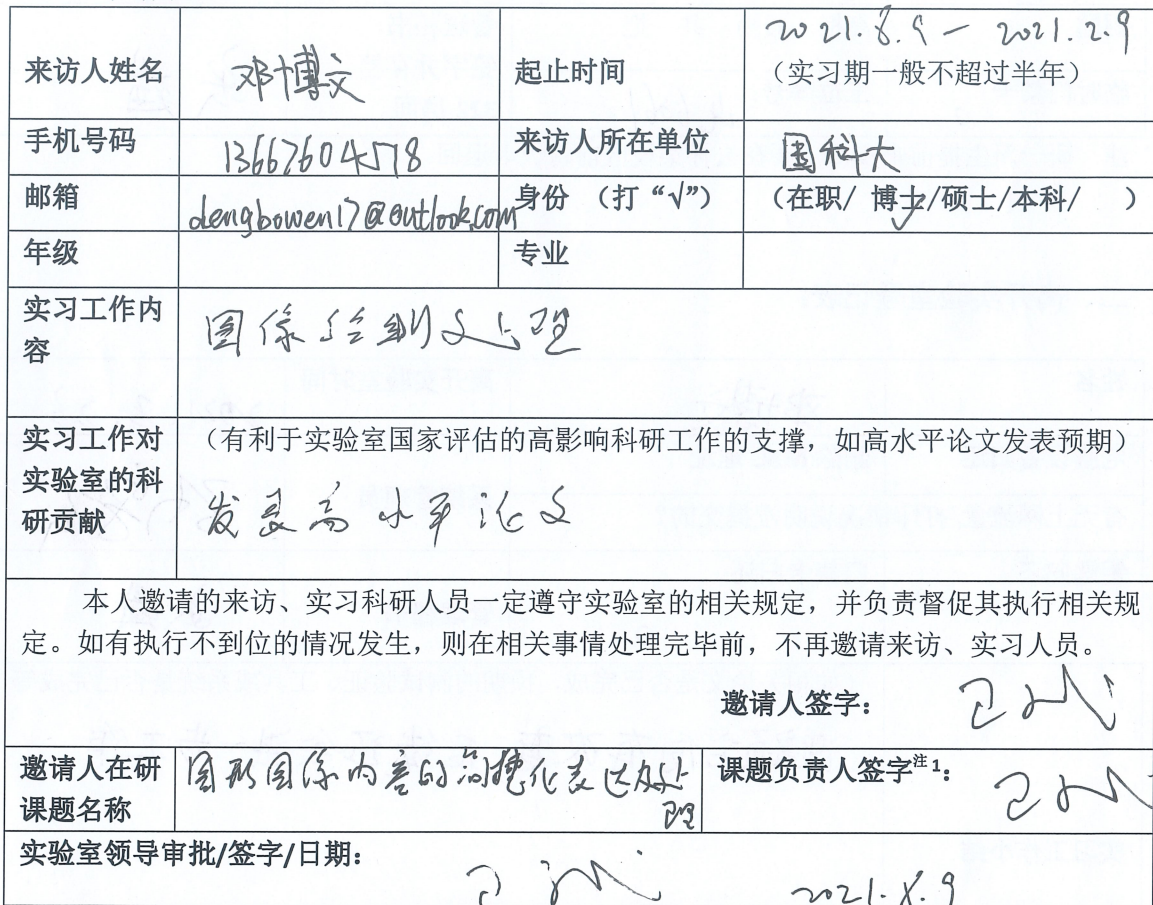 2021.8.9 — 2021.2.9
来访人姓名 邓博文 起止时间 （实习期一般不超过半年）
手机号码 13667604578 来访人所在单位 国科大
邮箱 dengbowen17@outlook.com 身份 （打“√”） （在职/ 博士/硕士/本科/ ）
√
年级 专业
实习工作内
容
图像绘制处理
实习工作对 （有利于实验室国家评估的高影响科研工作的支撑，如高水平论文发表预期）
实验室的科
研贡献
发表高水平论文
本人邀请的来访、实习科研人员一定遵守实验室的相关规定，并负责督促其执行相关规
定。如有执行不到位的情况发生，则在相关事情处理完毕前，不再邀请来访、实习人员。
邀请人签字：
邀请人在研 图形图像内容的 表达及处 课题负责人签字注1：
课题名称 理
实验室领导审批/签字/日期：
2021.8.9